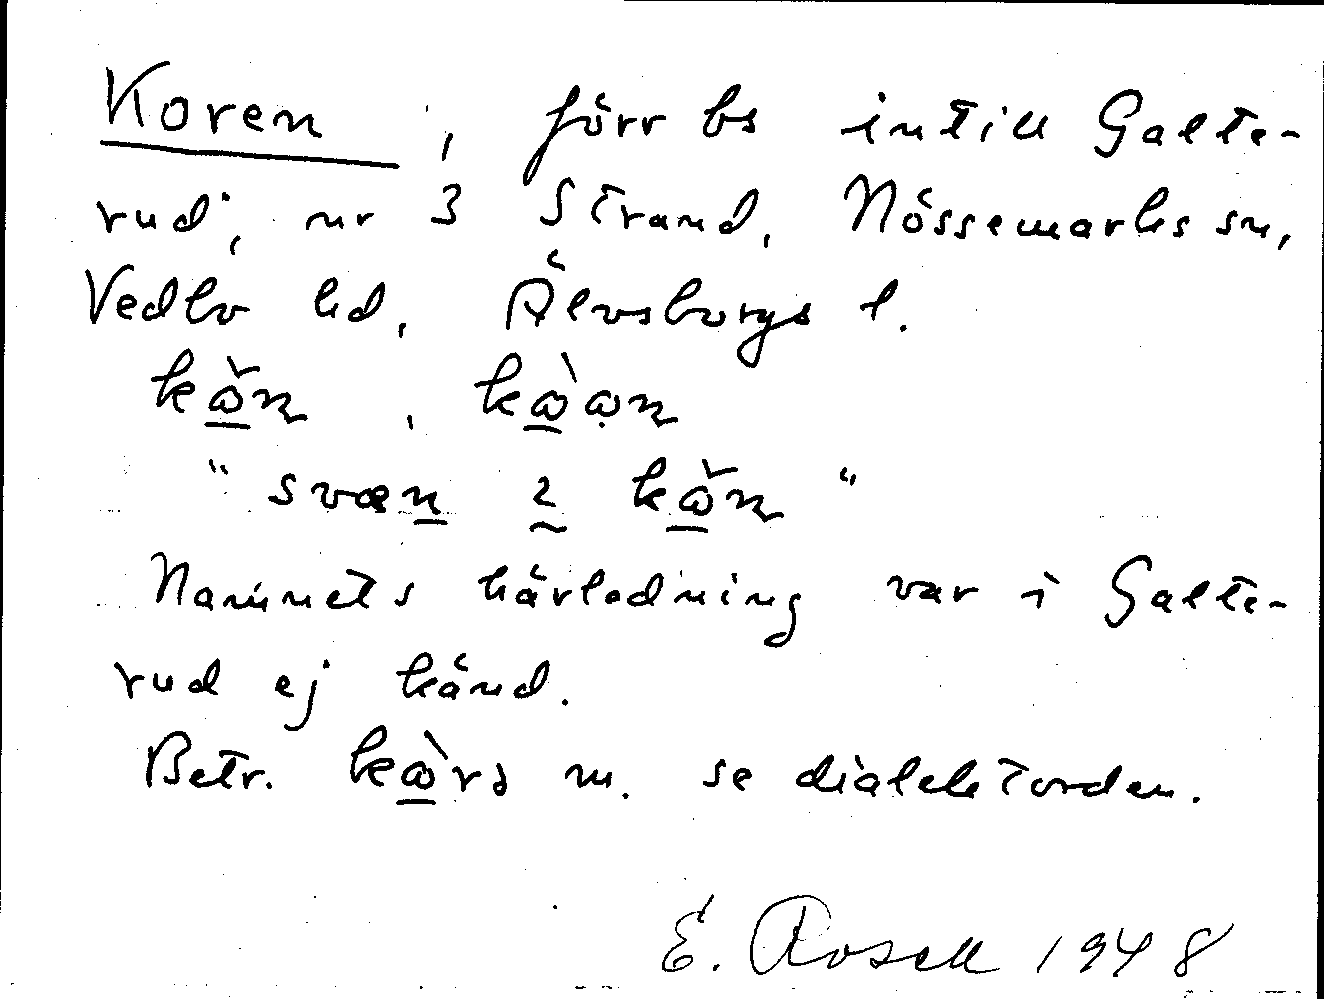 Koren, förr bs intill Galte-
rud, nr 3 Strand, Nössemarks sn,
Vedbo hd, Älvsborgs l.
“ ”
Namnets härledning var i Galte-
rud ej känd.
Betr. m. se dialektorden.
E. Rosell 1948